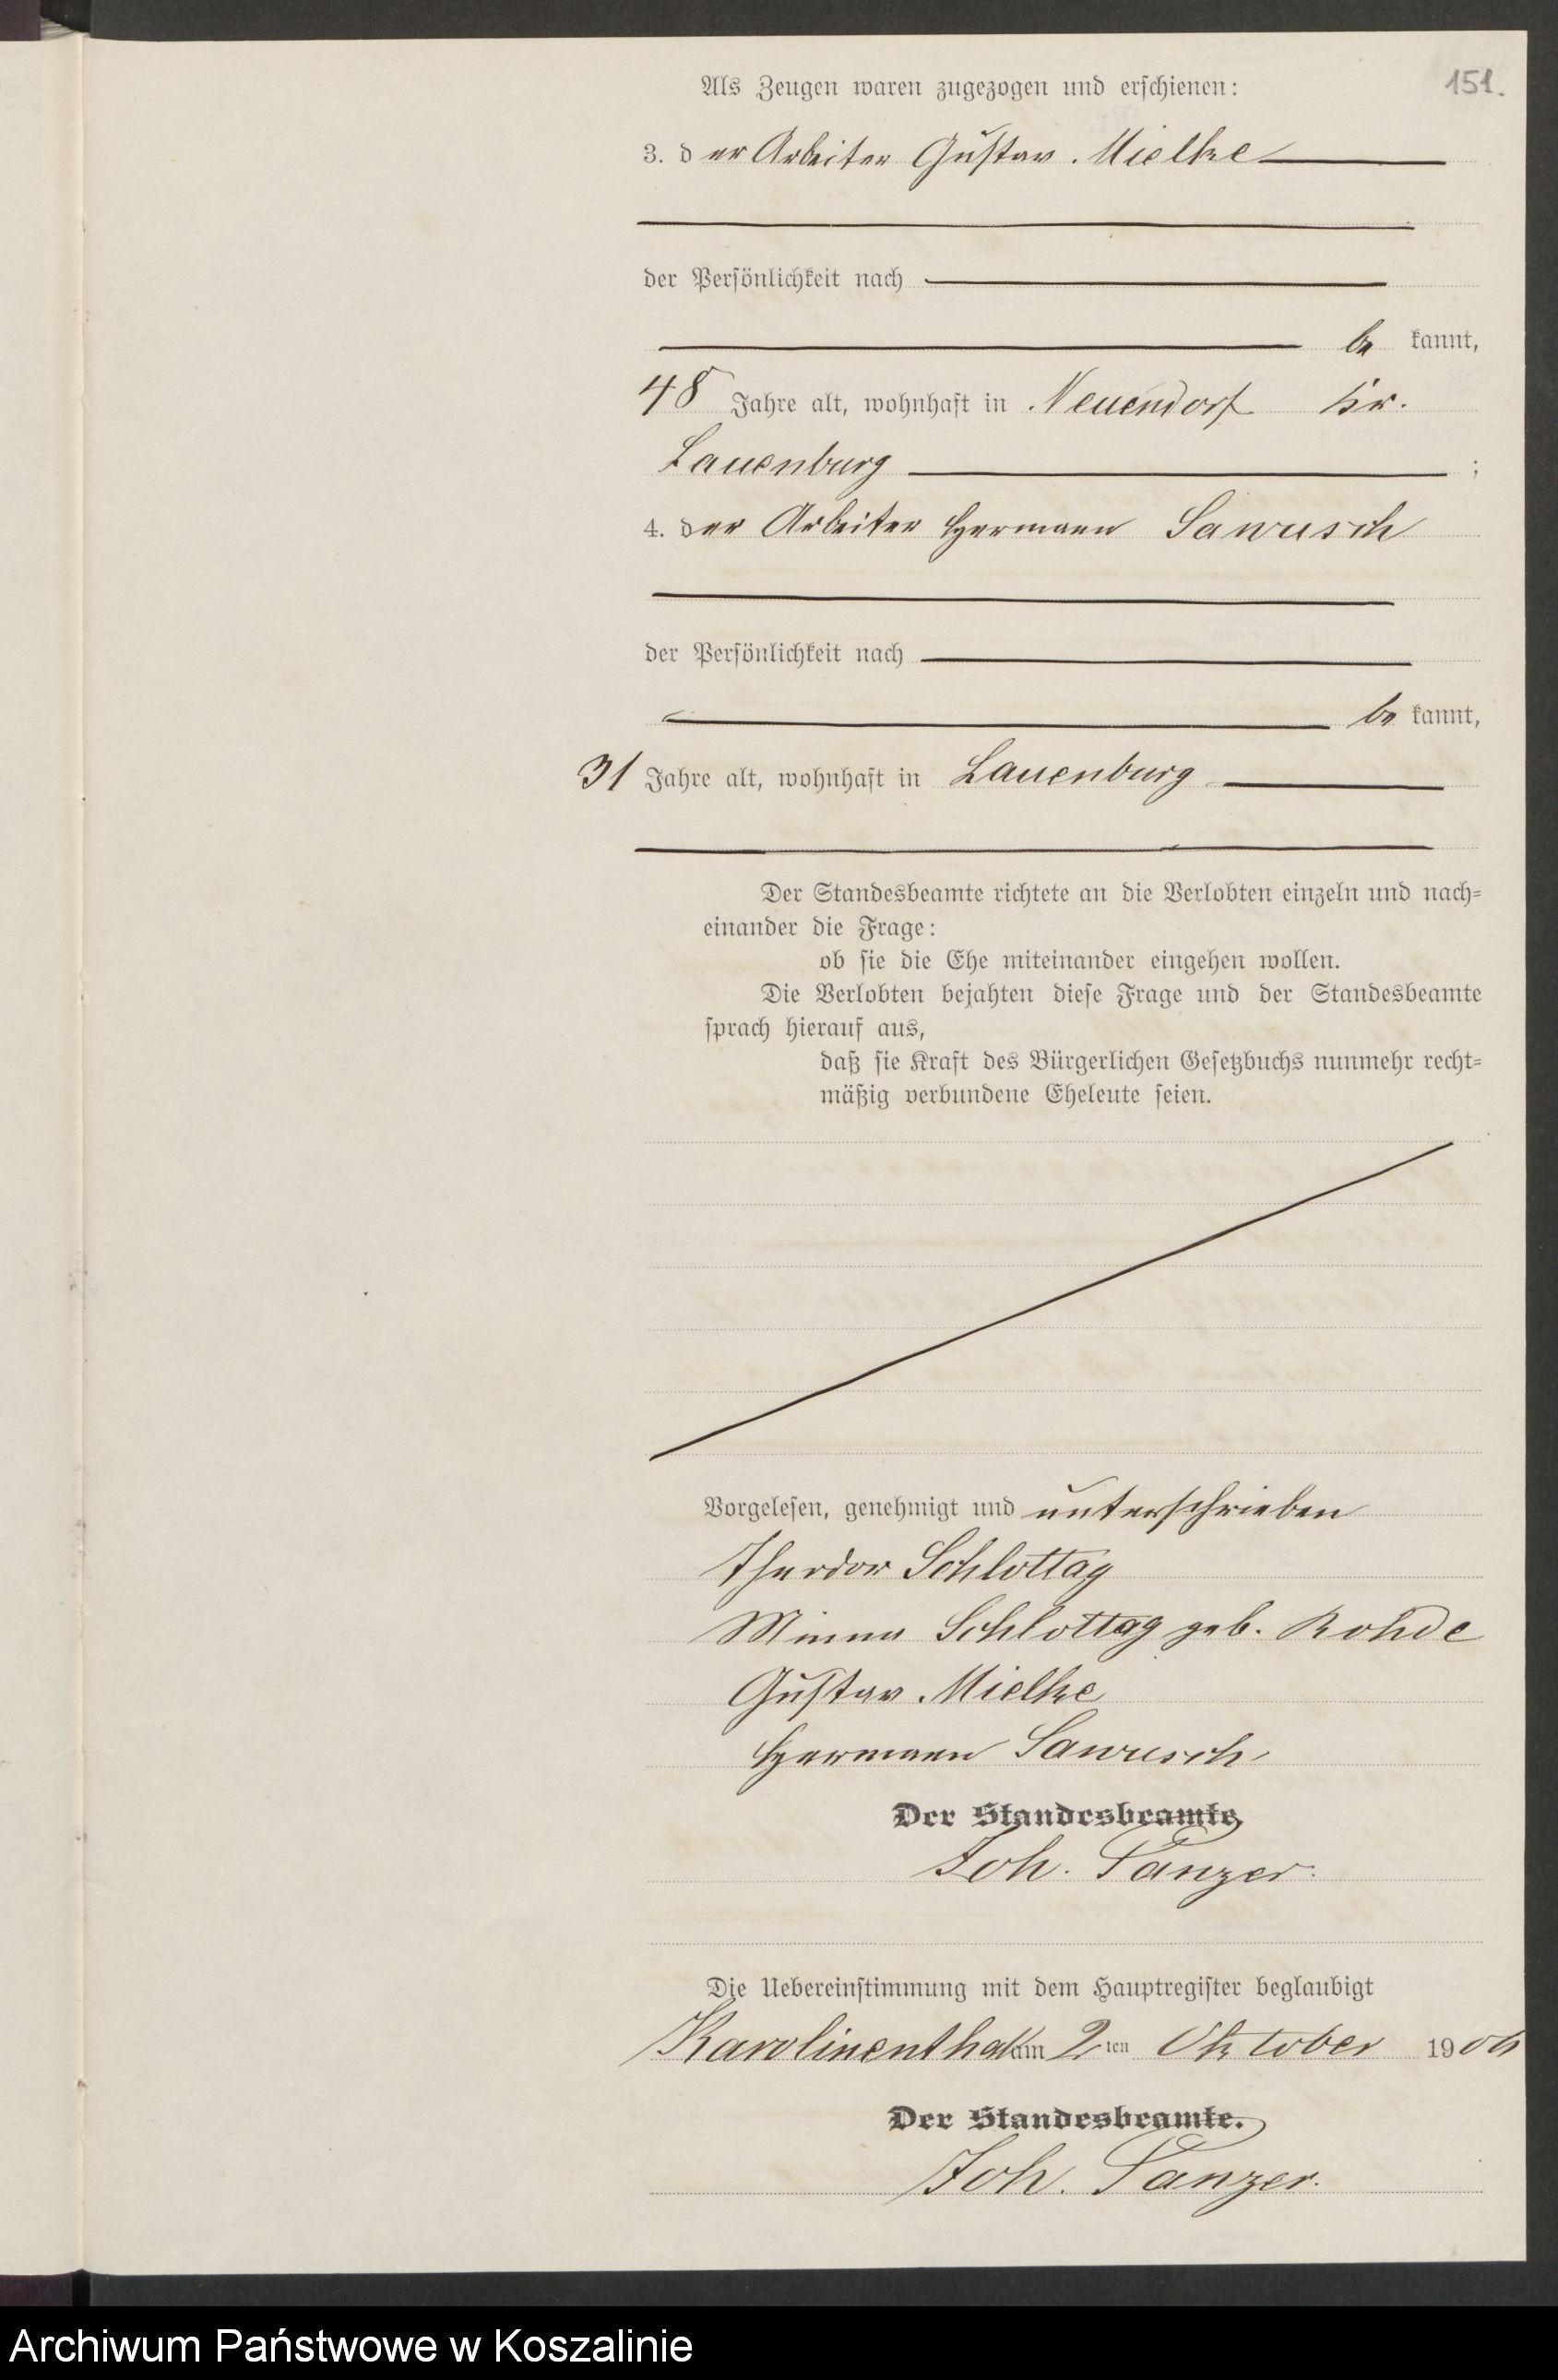 151.
Als Zeugen waren zugezogen und erschienen:
3. der Arbeiter Gustav Mielke
der Persönlichkeit nach
be kannt,
48 Jahre alt, wohnhaft in Neuendorf Kr.
Lauenburg ;
4. der Arbeiter Hermann Sawusch
der Persönlichkeit nach
be kannt,
31 Jahre alt, wohnhaft in Lauenburg
Der Standesbeamte richtete an die Verlobten einzeln und nach=
einander die Frage:
ob sie die Ehe miteinander eingehen wollen.
Die Verlobten bejahten diese Frage und der Standesbeamte
sprach hierauf aus,
daß sie Kraft des Bürgerlichen Gesetzbuchs nunmehr recht=
mäßig verbundene Eheleute seien.
Vorgelesen, genehmigt und unterschrieben
Theodor Schlottag
Minna Schlottag geb. Rohde
Gustav Mielke
Hermann Sawusch
Der Standesbeamte
Joh. Panzer.
Die Uebereinstimmung mit dem Hauptregister beglaubigt
Karolinenthal am 2 ten Oktober 19
Der Standesbeamte.
Joh. Panzer.
Archiwum Państwowe w Koszalinie